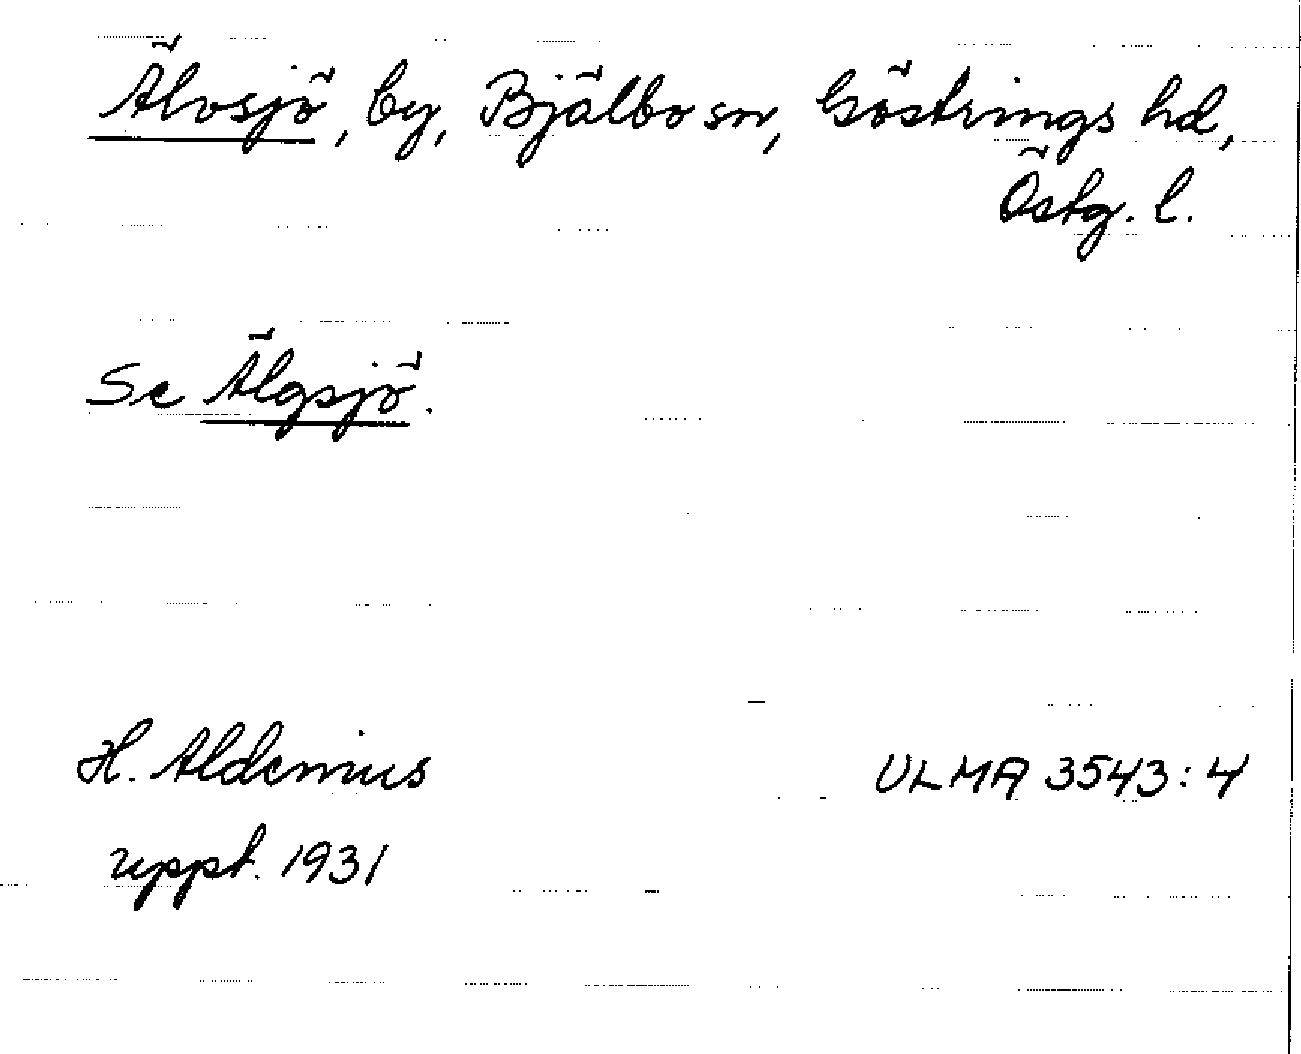 Älvsjö, by, Bjälbo sn, Göstrings hd,
Östg. l.
Se Älgsjö.
H. Aldemius ULMA 3543:4
uppt. 1931